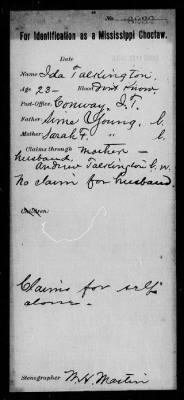 No.
For Identification as a Mississippi Choctaw.
Date
Name Ida Talkington,
Age 23- Blood Don't know.
Post-Office, Conway, I.T.
Father Young, C.
Mother Sarah F. " C.
Claims through mother -
husband,
Andrew Talkington C. W.
No claim for husband.
Children:
Claims for self
alone.
Stenographer W. H. Martin